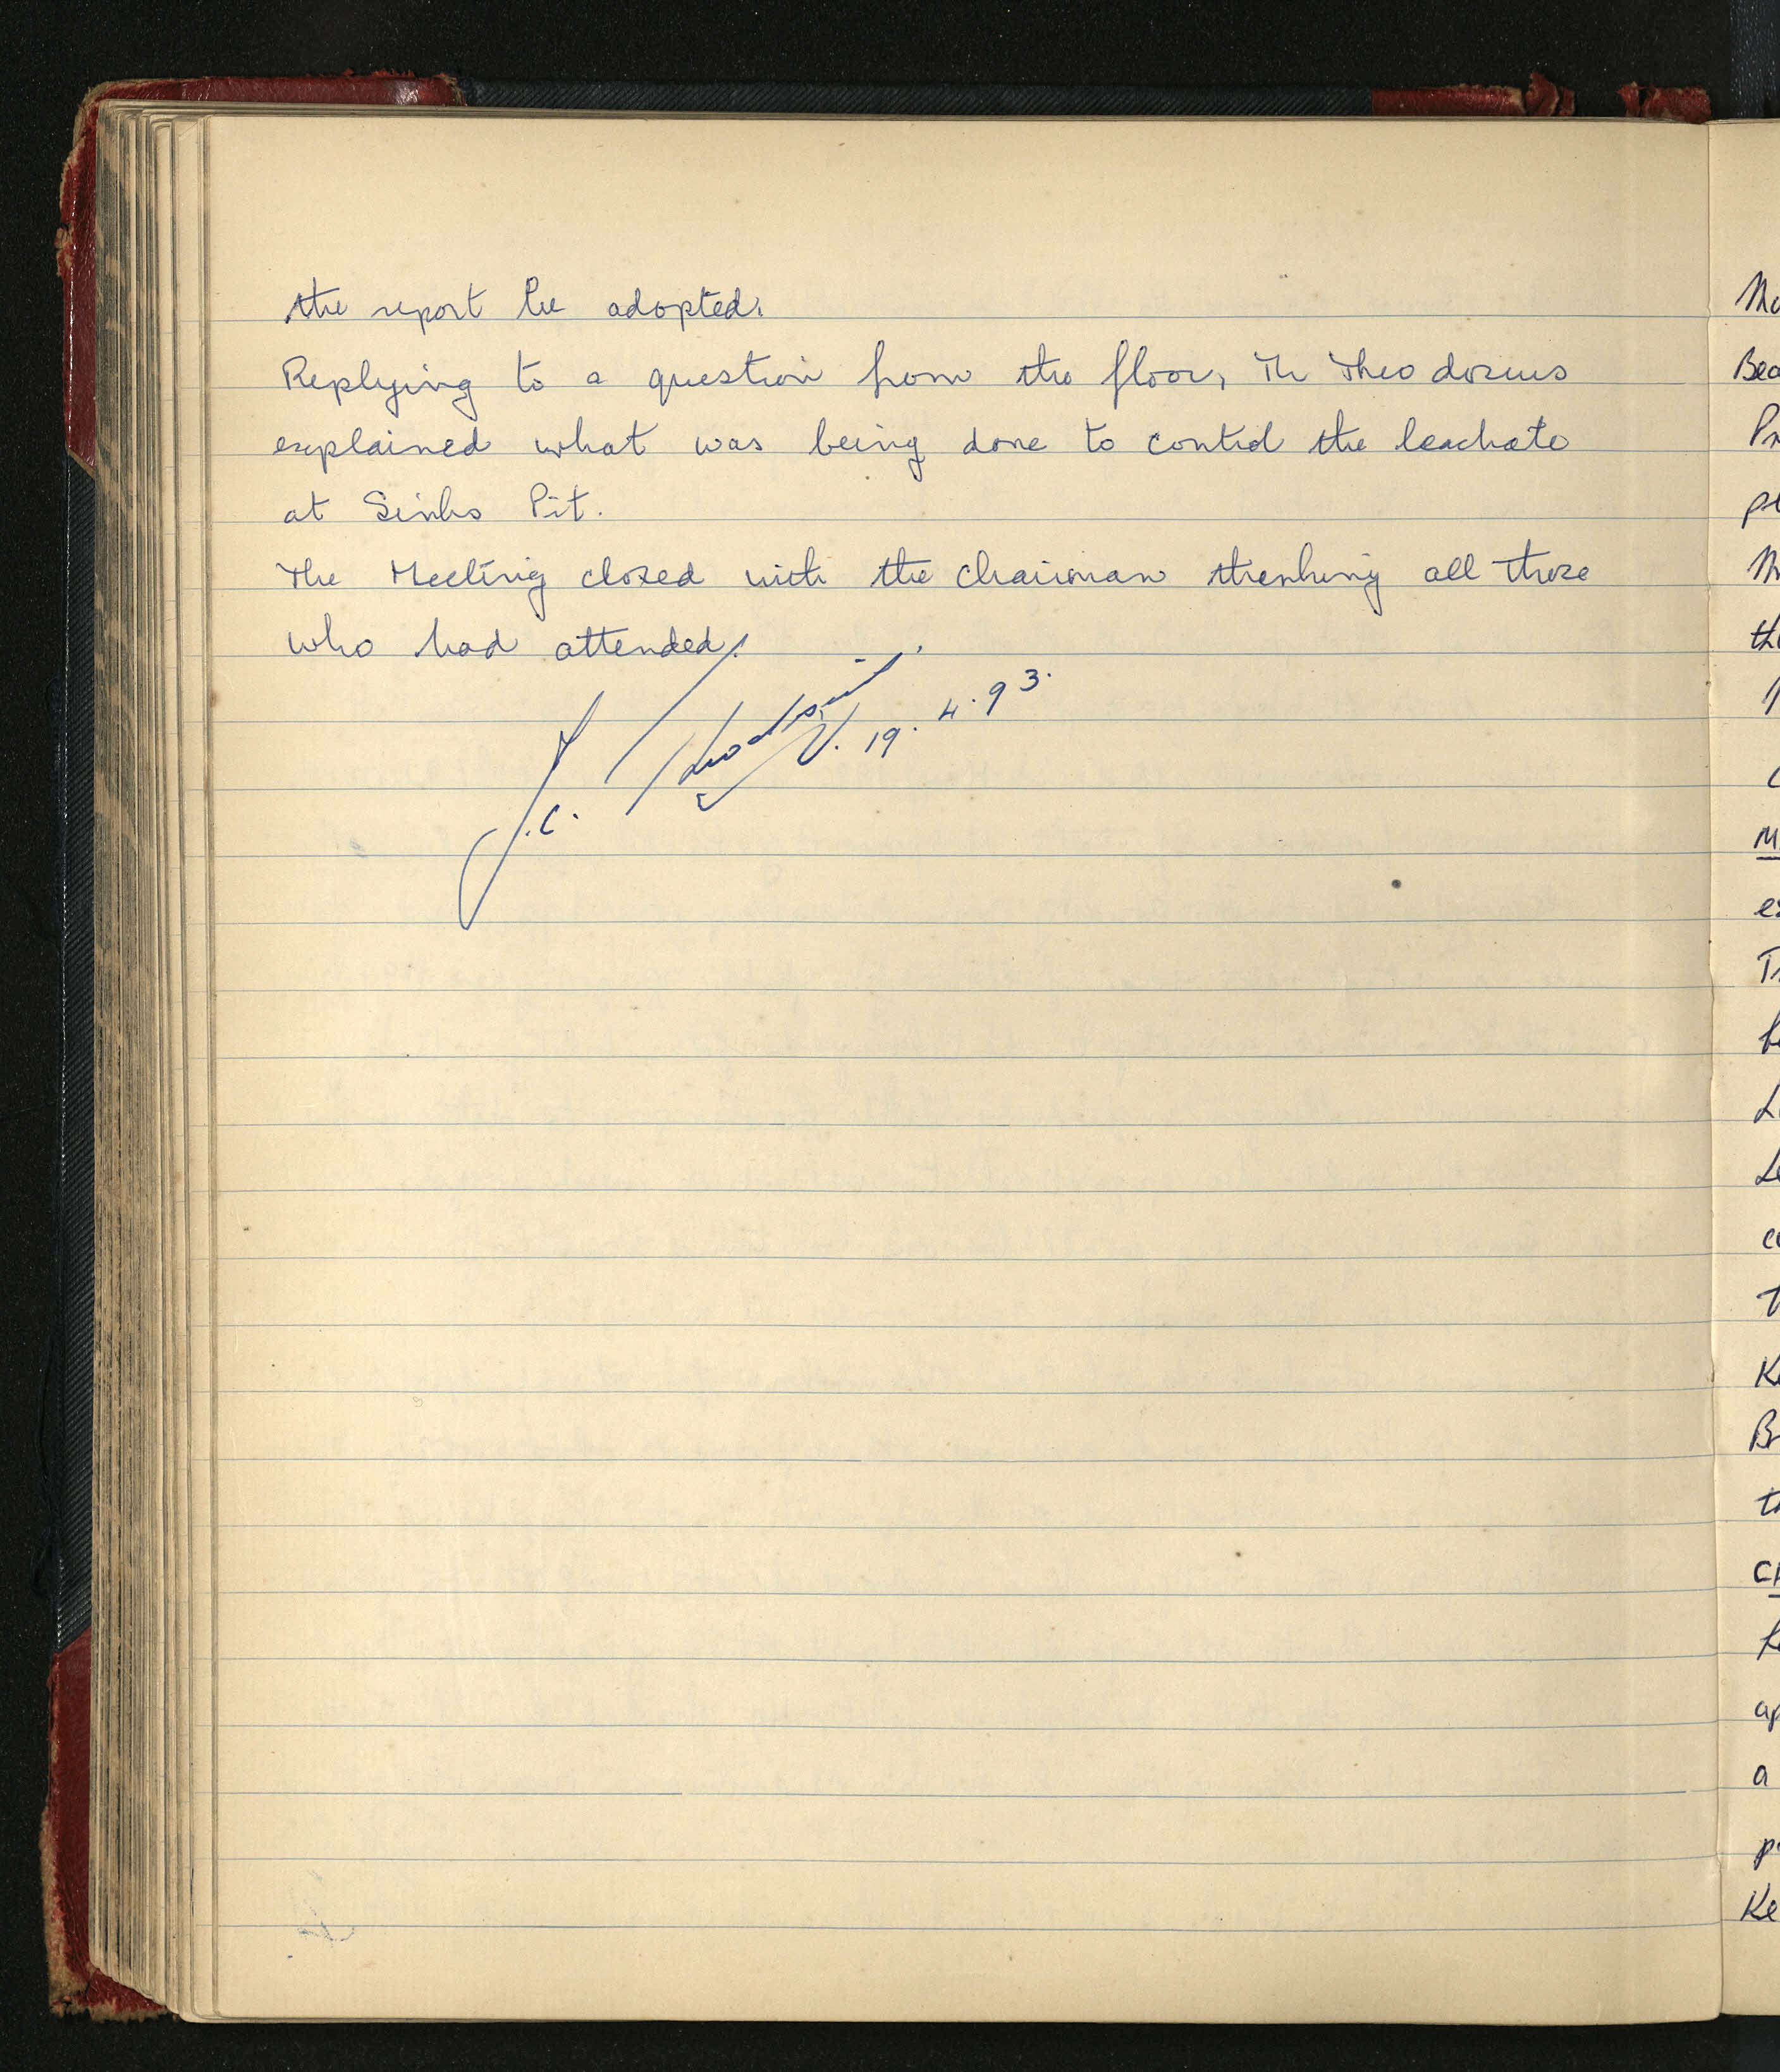 the report be adopted.
Replying to a question from the floor, Mr Theodosius
explained what was being done to control the leachate
at Pit.
The Meeting closed with the chairman thanking all those
who had attended.
J.C. Theodosius 19.4.93.